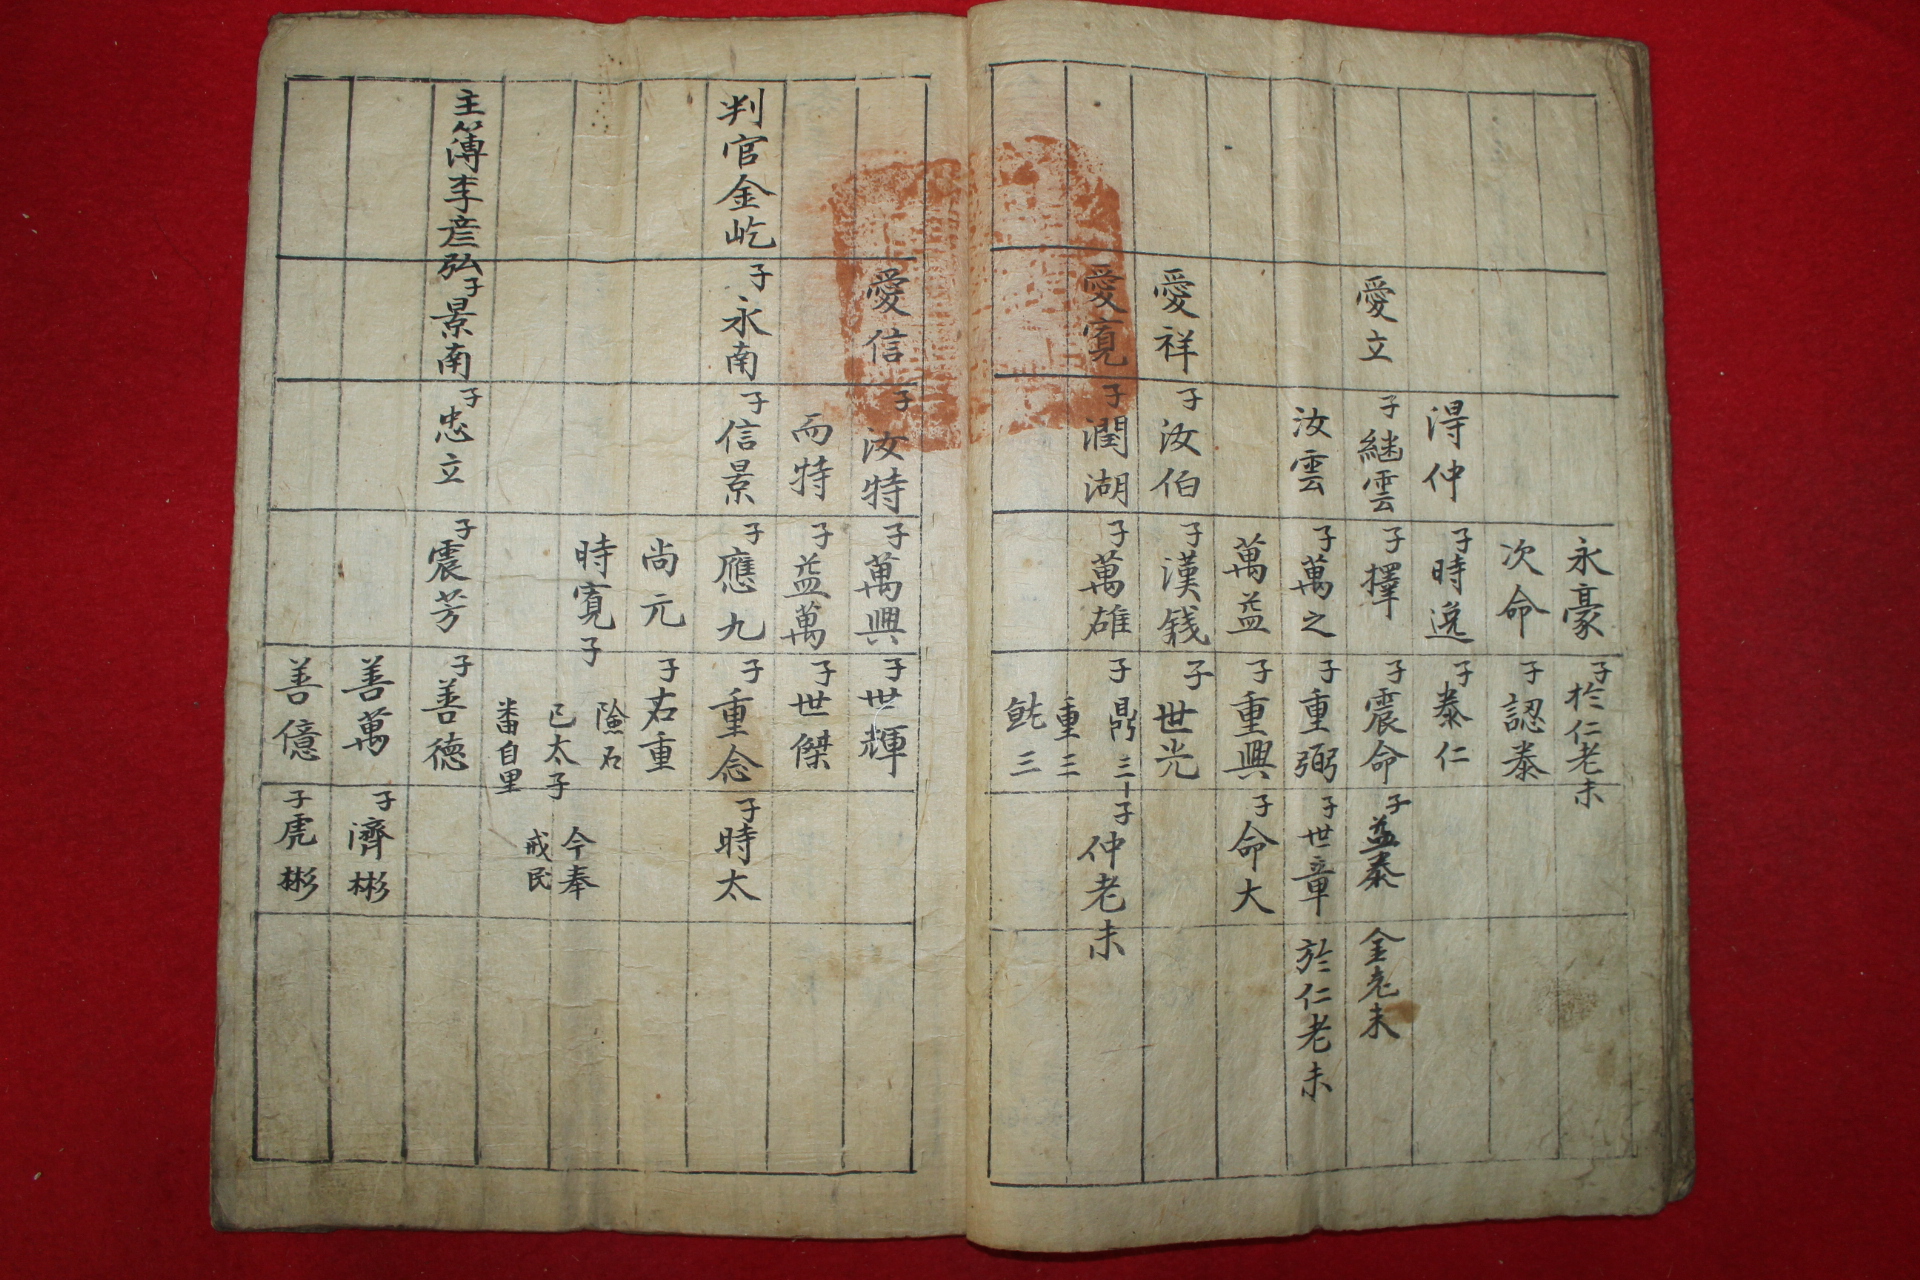 永豪子於仁老未
次命子認泰
得仲子時逸子泰仁
愛立子継雲子擇子震命子益泰金老未
汝雲子萬之子重弼子世章於仁老未
萬益子重興子命大
愛祥子汝伯子漢銭子世光
愛寛子潤湖子萬雄子鼎三子仲老未
重三
三
愛信子汝特子萬興子世輝
而特子益萬子世傑
判官金屹子永南子信景子應九子重念子時太
尚元子右重
時寛子
險石
已太子今奉
戒民
番自里
主簿李彦弘子景南子忠立子震芳子善徳
善萬子濟彬
善億子虎彬